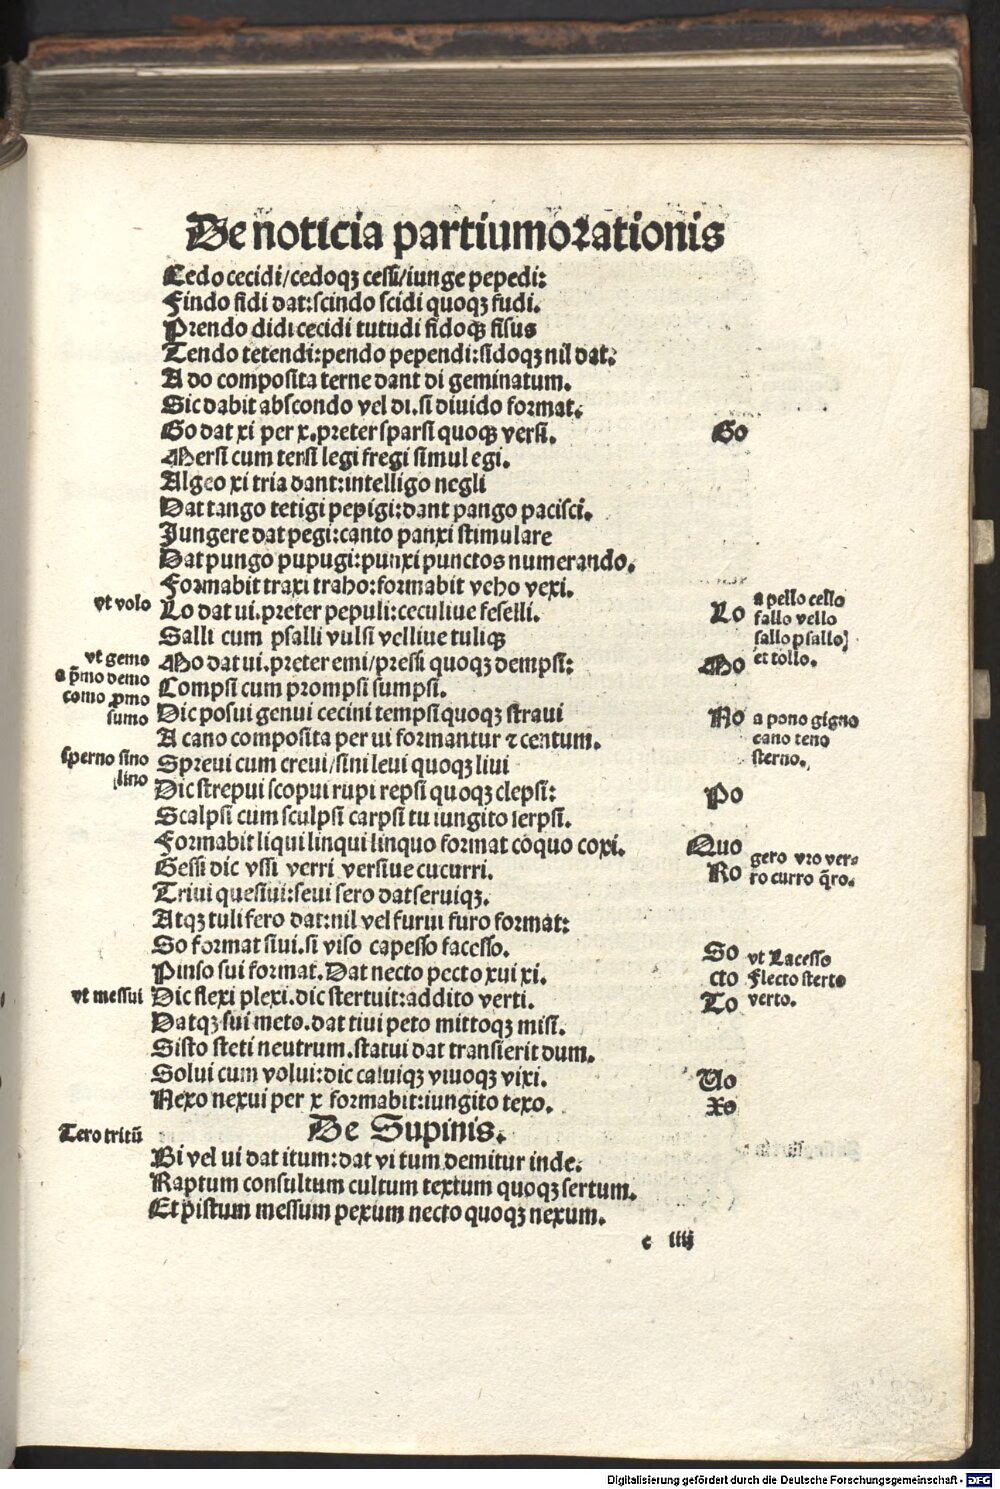 De noticia partiumorationis
Cedo cecidi/cedoqꝫ cessi/iunge pepedi:
Findo fidi dat:scindo scidi quoqꝫ fudi.
Prendo didi cecidi tutudi fidoqꝫ fisus
Tendo tetendi:pendo pependi:sidoqꝫ nil dat:
A do composita terne dant di geminatum.
Sic dabit abscondo vel di.si diuido format.
Go dat xi per x.preter sparsi quoqꝫ versi.
Go
Mersi cum tersi legi fregi simul egi.
Algeo xi tria dant:intelligo negli
Dat tango tetigi pepigi:dant pango pacisci.
Jungere dat pegi:canto panxi stimulare
Dat pungo pupugi:punxi punctos numerando.
Formabit traxi traho:formabit veho vexi.
vt volo
Lo dat ui.preter pepuli:ceculiue fefelli.
Lo
a pello cello
fallo vello
sallo psallo
et tollo.
Salli cum psalli vulsi velliue tuliqꝫ
vt gemo
a p̄mo demo
como ꝓmo
sumo
Mo dat ui.preter emi/pressi quoqꝫ dempsi:
Mo
Compsi cum prompsi sumpsi.
Dic posui genui cecini tempsi quoqꝫ straui
No
a pono gigno
cano teno
sterno.
A cano composita per ui formantur ⁊ centum.
sperno sino
lino
Spreui cum creui/sini leui quoqꝫ liui
Dic strepui scopui rupi repsi quoqꝫ clepsi:
Po
Scalpsi cum sculpsi carpsi tu iungito serpsi.
Formabit liqui linqui linquo format cōquo coxi.
Quo
Gessi dic vssi verri versiue cucurri.
Ro
gero vro ver⸗
ro curro q̄ro.
Triui quesiui:seui sero dat seruiqꝫ.
Atqꝫ tuli fero dat:nil vel furui furo format:
So format siui.si viso capesso facesso.
So
vt Lacesso
Pinso sui format.Dat necto pecto xui xi.
cto
flecto sterto
vt messui
Dic flexi plexi.dic stertuit:addito verti.
To
verto.
Datqꝫ sui meto.dat tiui peto mittoqꝫ misi.
Sisto steti neutrum.statui dat transierit dum.
Solui cum volui:dic caluiqꝫ viuoqꝫ vixi.
Uo
Nexo nexui per x formabit:iungito texo.
Xo
De Supinis.
Tero tritū
Bi vel ui dat itum:dat vi tum demitur inde.
Raptum consultum cultum textum quoqꝫ sertum.
Et pistum messum pexum necto quoqꝫ nexum.
c iiij
Digitalisierung gefördert durch die Deutsche Forschungsgemeinschaft - DFG